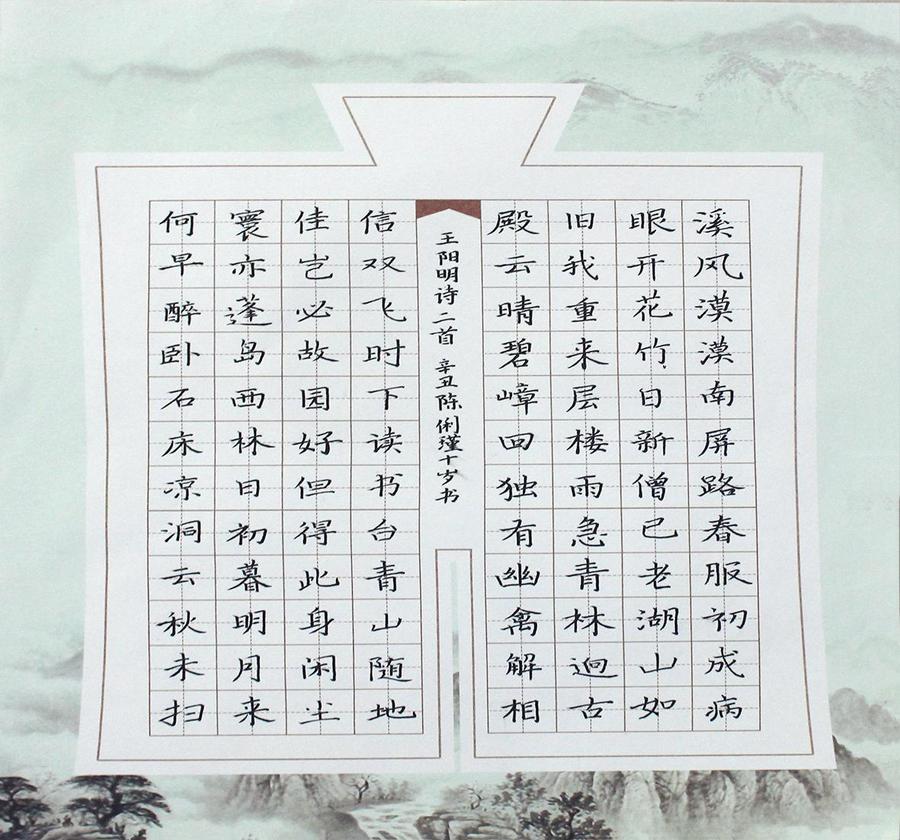 溪风漠漠南屏路春服初成病
眼开花竹日新僧已老湖山如
旧我重来层楼雨急青林迥古
殿云晴碧嶂回独有幽禽解相
王阳明诗二首 辛丑陈俐瑾十岁书
信双飞时下读书台青山随地
佳岂必故园好但得此身闲尘
寰亦蓬岛西林日初暮明月来
何早醉卧石床凉洞云秋未扫